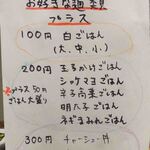 お好きな麺類
プラス
100円 白ごはん
(大、中、小)
200円 玉子かけごはん
シャケマヨごはん
プラス50円 辛子高菜ごはん
ごはん大盛り 明太子ごはん
ネギまみれごはん
300円 チャーシュー丼